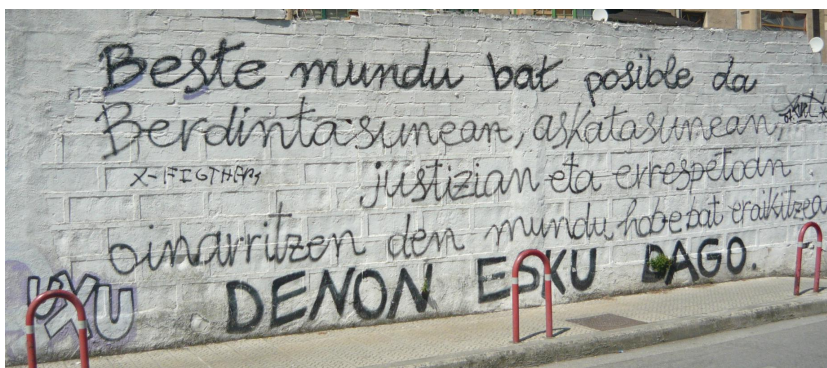 Beste mundu bat posible da
Berdintasunean, askatasunean,
X-FIGTHERS
justizian eta errespetoan
oinarritzen den mundu hobe bat eraikitzea
UXU
DENON ESKU DAGO.